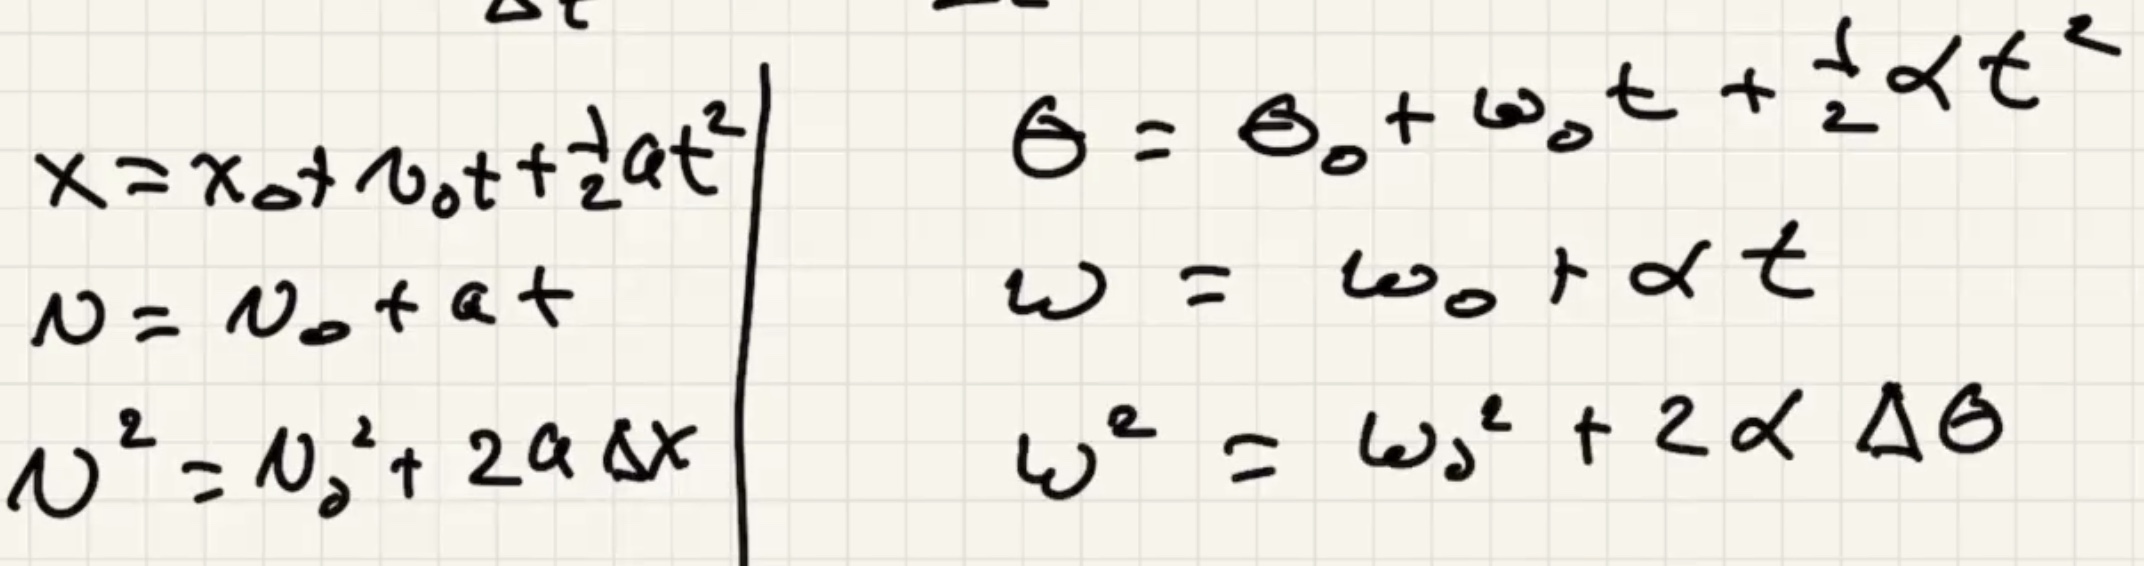 Δt
x = x₀ + v₀t + ½at²
v = v₀ + at
v² = v₀² + 2aΔx
θ = θ₀ + ω₀t + ½αt²
ω = ω₀ + αt
ω² = ω₀² + 2αΔθ